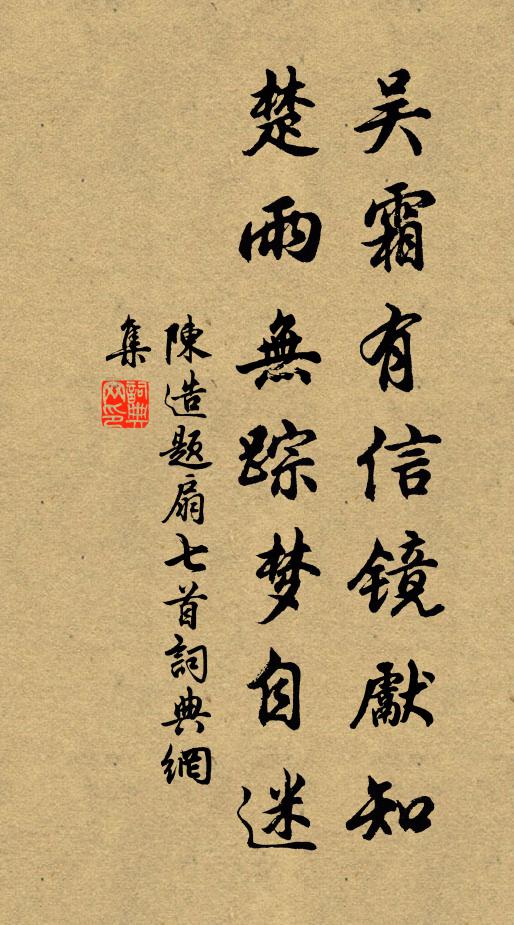 吴霜有信镜獻知
楚雨無踪梦自迷
陳造题扇七首詞典網
集
詞典網印